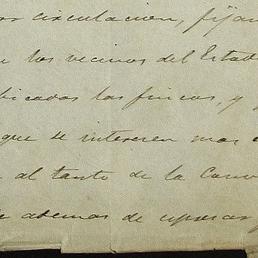 circulacion, fijan
los vecinos del Estad
bicadas las fincas, y
que se interesen mas
al tanto de la Conv
ademas de espresar